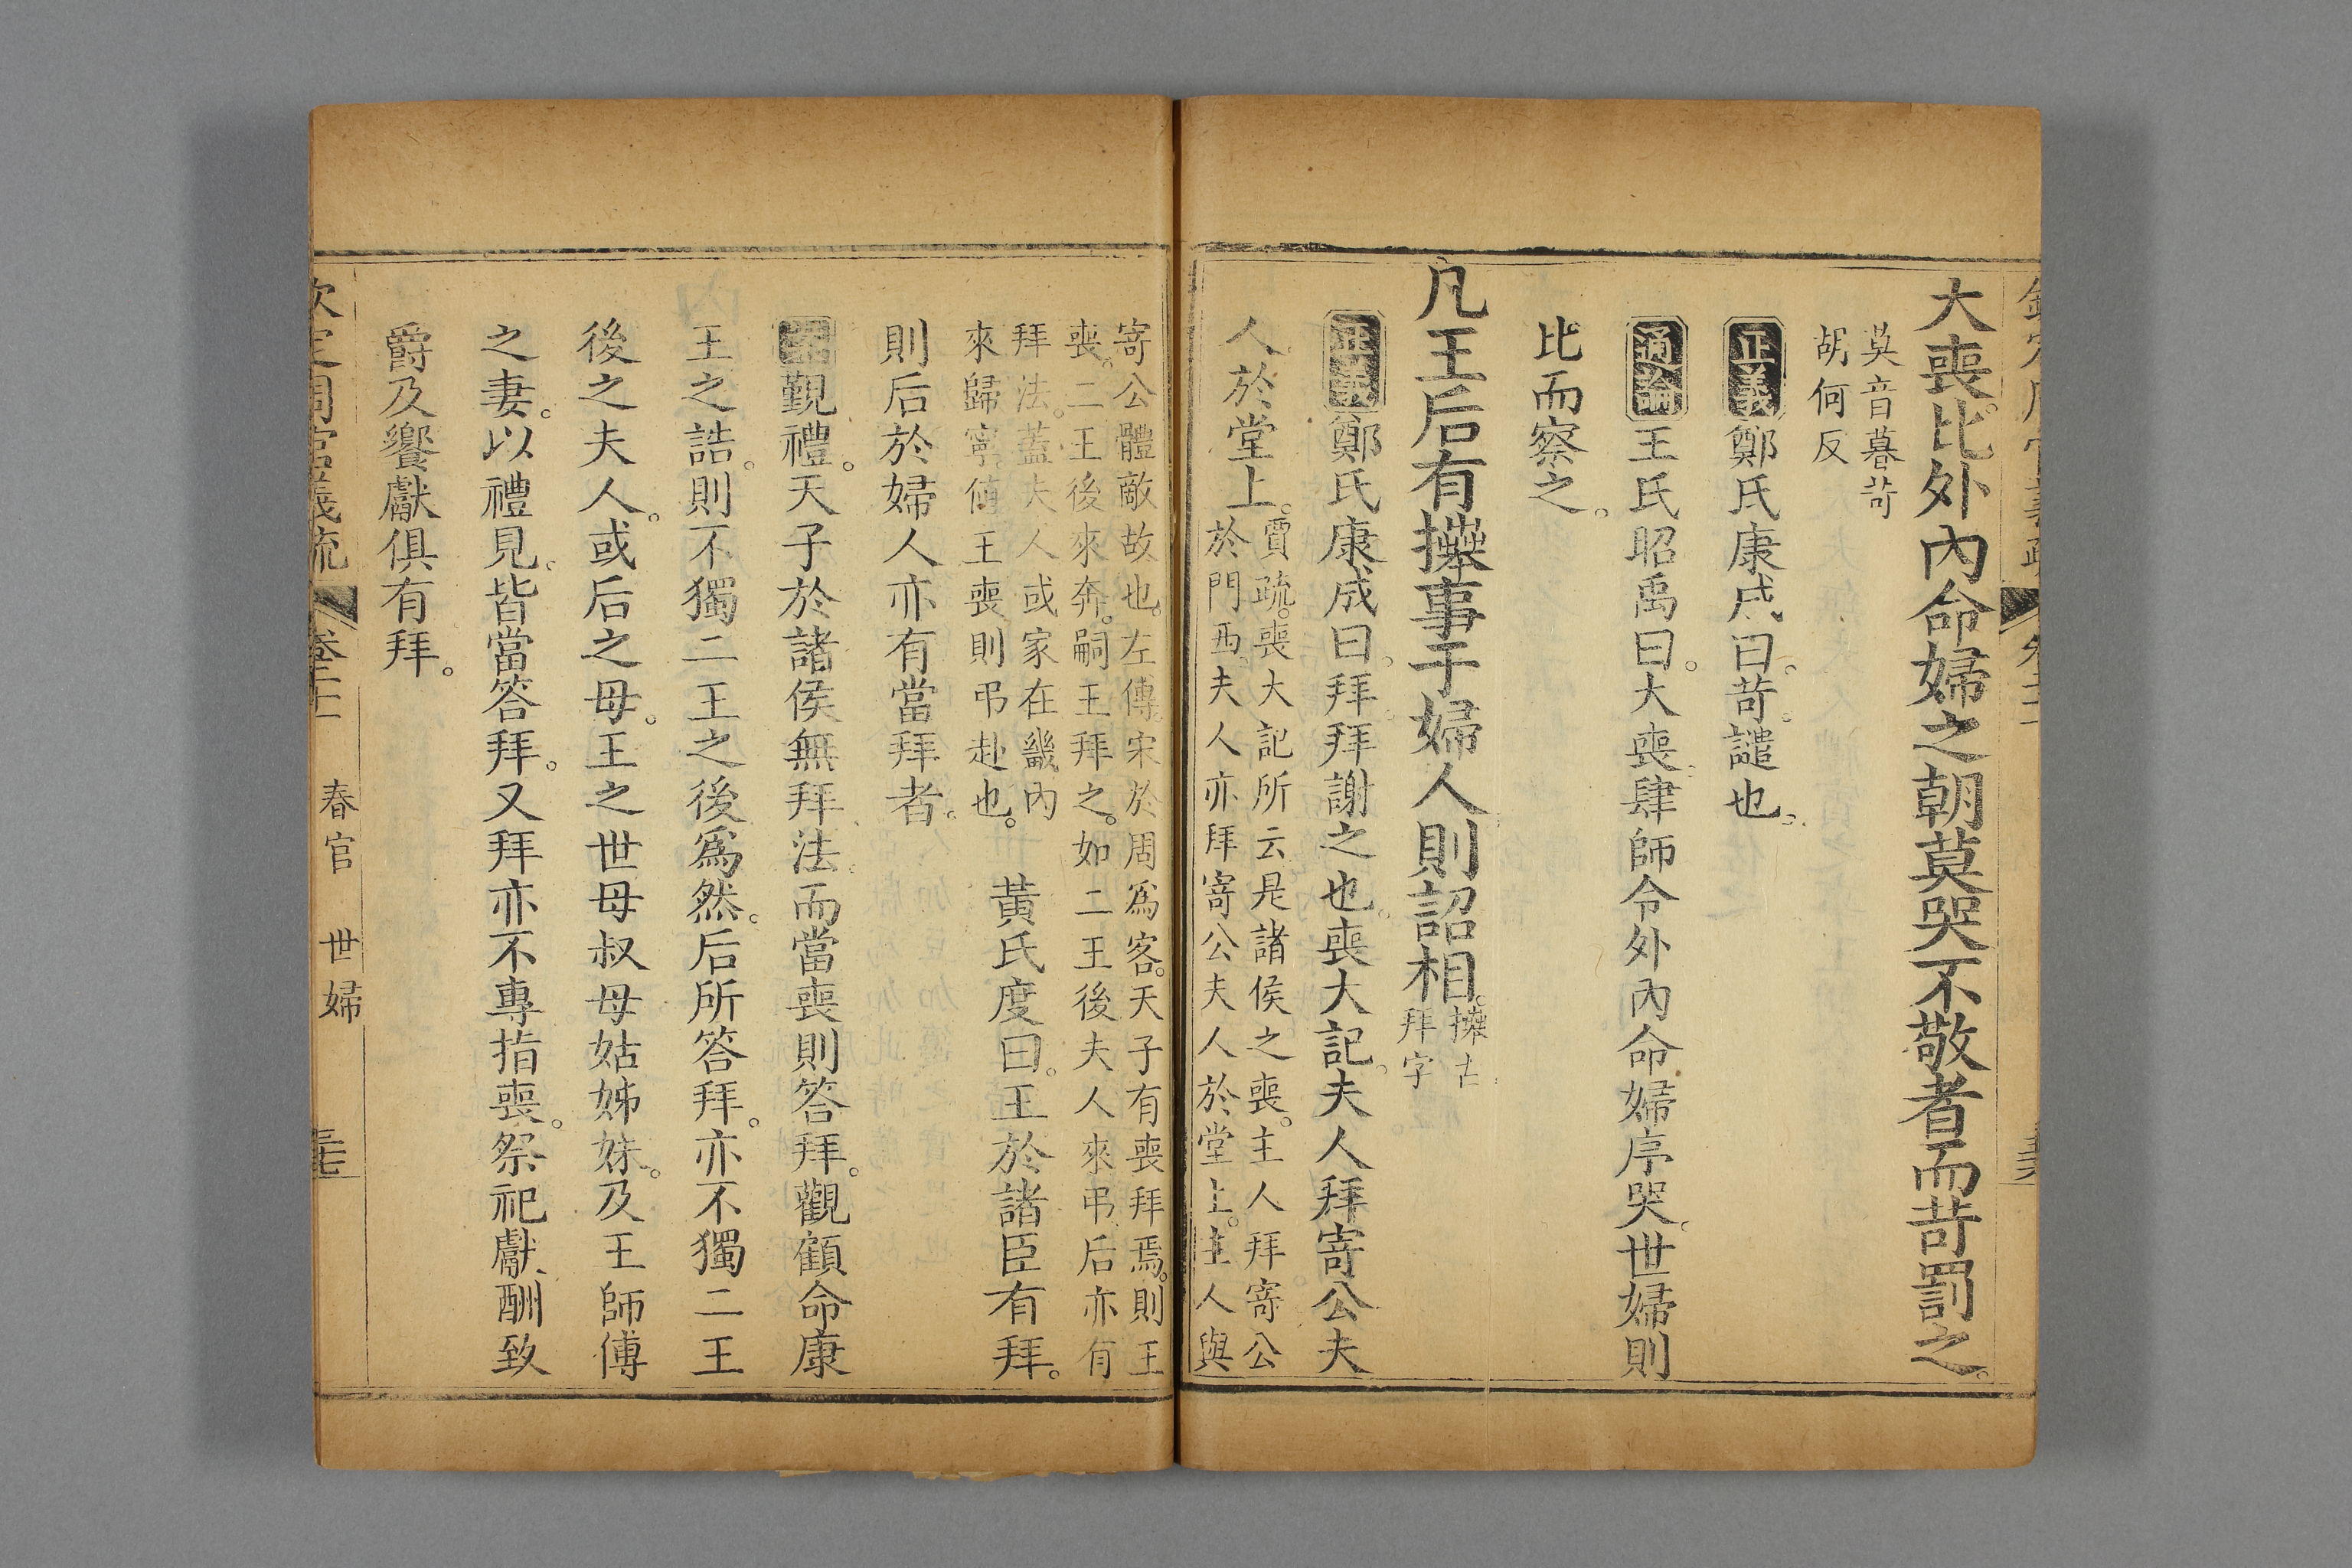 大喪。比外內命婦之朝莫哭不敬者而苛罰之。
莫音暮苛
胡何反
正義鄭氏康成曰。苛。譴也。
通論王氏昭禹曰。大喪。肆師令外內命婦序哭。世婦則
比而察之。
凡王后有𢷎事于婦人則詔相。
𢷎古
拜字
正義鄭氏康成曰。拜。拜謝之也。喪大記。夫人拜寄公夫
人於堂上。
賈疏。喪大記所云是諸侯之喪。主人拜寄公
於門西。夫人亦拜寄公夫人於堂上。主人與
寄公體敵故也。左傳。宋於周爲客。天子有喪拜焉。則王
喪。二王後來奔。嗣王拜之。如二王後夫人來弔。后亦有
拜法。蓋夫人或家在畿內
來歸寧。值王喪則弔赴也。
黃氏度曰。王於諸臣有拜。
則后於婦人亦有當拜者。
覲禮。天子於諸侯無拜法。而當喪則答拜。觀顧命康
王之誥。則不獨二王之後爲然。后所答拜。亦不獨二王
後之夫人。或后之母。王之世母叔母姑姊妹。及王師傅
之妻。以禮見。皆當答拜。又拜亦不專指喪。祭祀獻酬致
爵及饗獻俱有拜。
欽定周官義疏 卷二十一 春官 世婦 三七